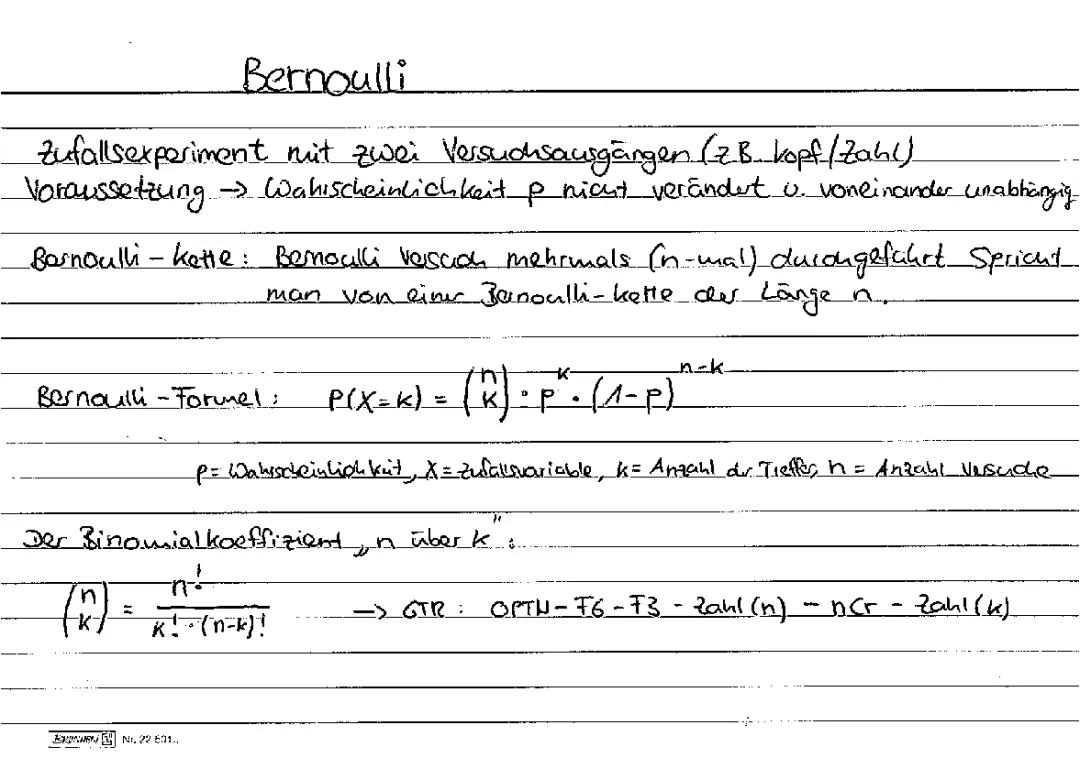 Bernoulli
Zufallsexperiment mit zwei Versuchsausgängen (z.B. Kopf/Zahl)
Voraussetzung → Wahrscheinlichkeit p nicht verändert u. voneinander unabhängig
Bernoulli-Kette: Bernoulli Versuch mehrmals (n-mal) durchgeführt Spricht
man von einer Bernoulli-Kette der Länge n.
Bernoulli-Formel: P(X=k) = (n k) · p^k · (1-p)^n-k
p= Wahrscheinlichkeit, X= Zufallsvariable, k= Anzahl der Treffer, n = Anzahl Versuche
Der Binomialkoeffizient „n über k":
(n k) = n! / k! · (n-k)! → GTR: OPTN - F6 - F3 - Zahl(n) - nCr - Zahl(k)
Nr. 22